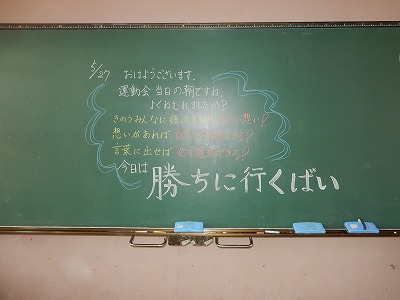 5/27 おはようございます。
運動会 当日の朝ですね。
よくねむれましたか?
きのうみんなに語って 想い!
想いがあれば
言葉に出せば できる!
今日は
勝ちに行くばい